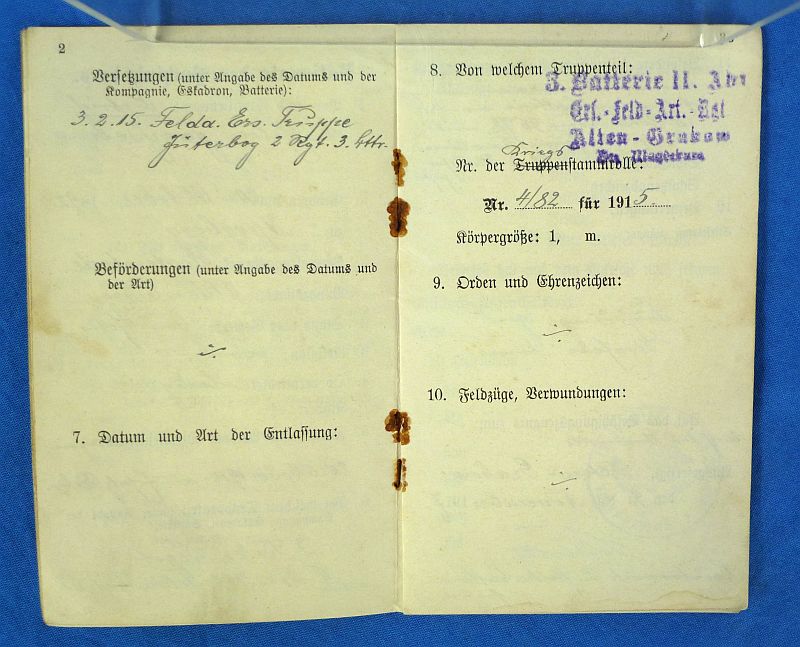 2
Versetzungen (unter Angabe des Datums und der
Kompagnie, Eskadron, Batterie):
3.2.15. Felda. Ers. Truppe
Jüterbog 2 Rgt. 3. Bttr.
Beförderungen (unter Angabe des Datums und
der Art)
7. Datum und Art der Entlassung:
8. Von welchem Truppenteil:
3. Batterie II. Abt
Ers.-Feld-Art.-Rgt
Alten-Grabow
Bez. Magdeburg
Kriegs
Nr. der Truppenstammrolle:
Nr. 4/82 für 1915.
Körpergröße: 1, m.
9. Orden und Ehrenzeichen:
10. Feldzüge, Verwundungen: